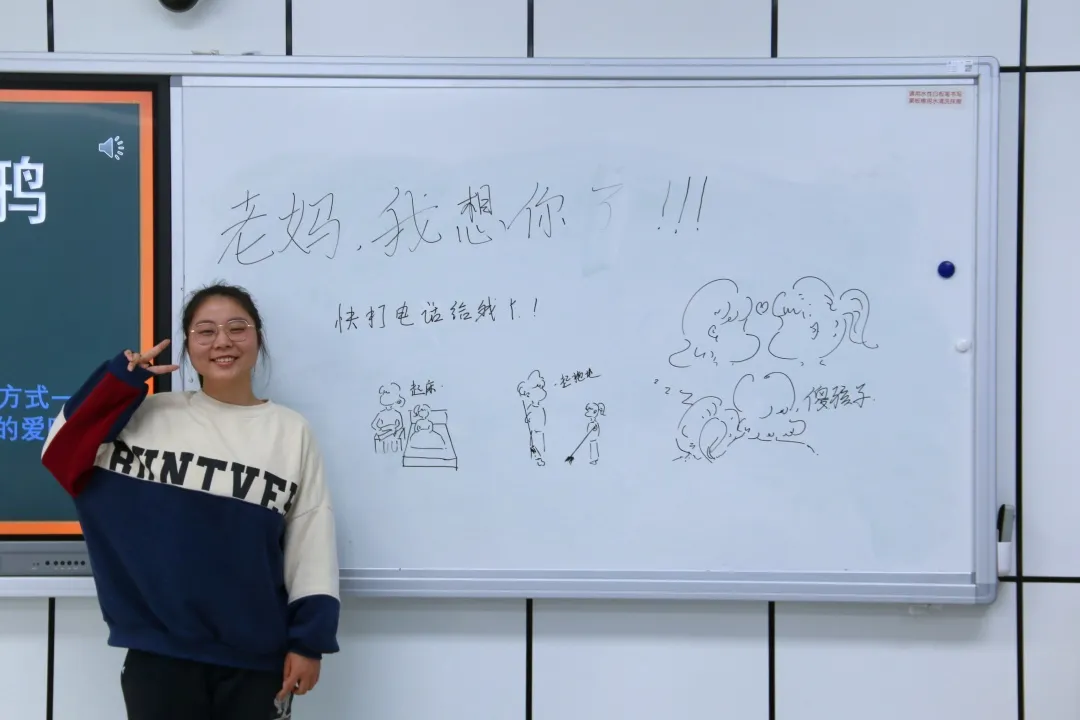 鸦
老妈,我想你了!!!
快打电话给
起床.
zzz
傻孩子.
方式一
的爱